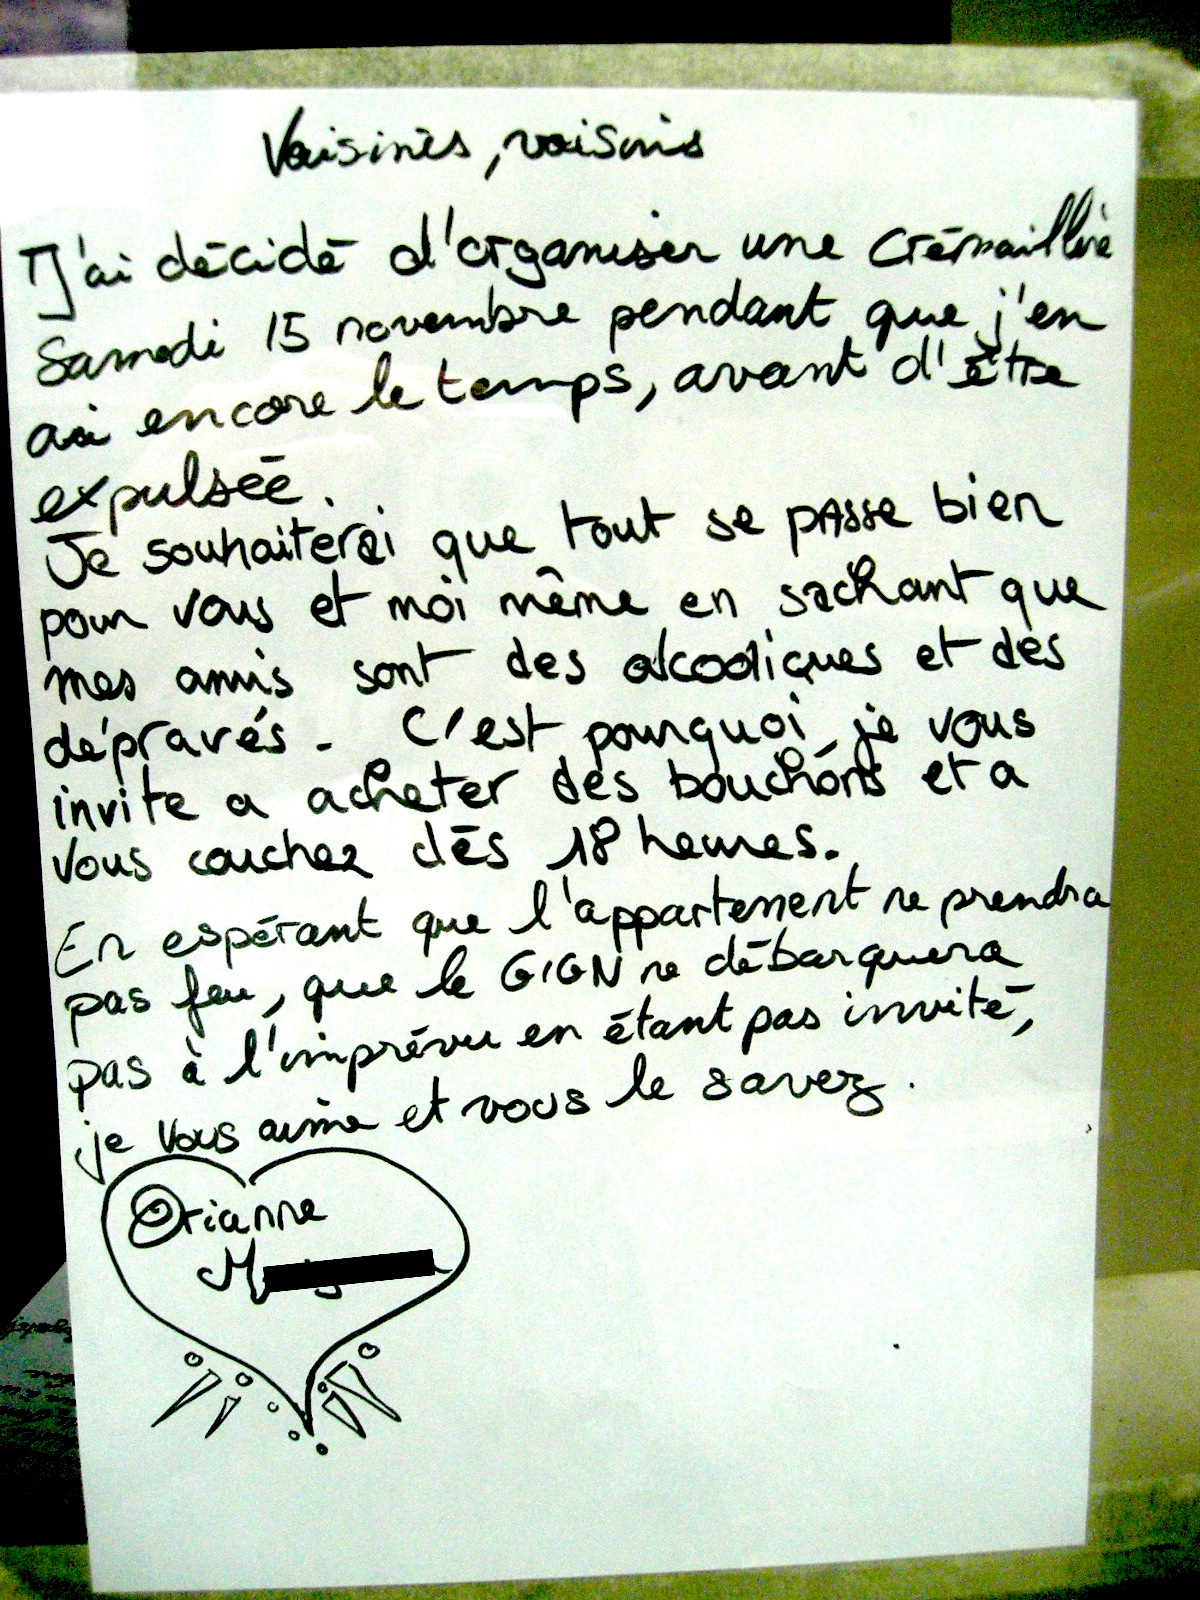 Voisines, voisins
J'ai décidé d'organiser une crémaillère
Samedi 15 novembre pendant que j'en
ai encore le temps, avant d'être
expulsée.
Je souhaiterai que tout se passe bien
pour vous et moi même en sachant que
mes amis sont des alcooliques et des
dépravés. C'est pourquoi je vous
invite a acheter des bouchons et a
vous couchez dès 18 heures.
En espérant que l'appartement ne prendra
pas feu, que le GIGN ne débarquera
pas à l'imprévu en étant pas invité,
je vous aime et vous le savez.
Orianne